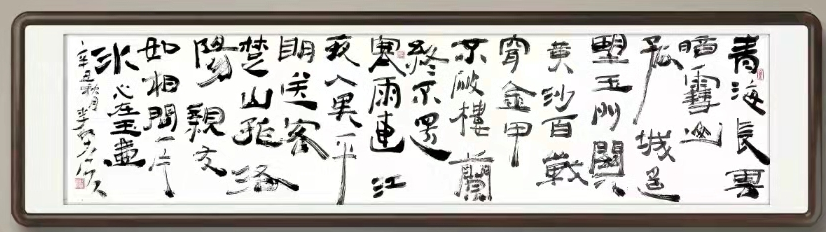 青海長雲
暗雪山
孤城遥
望玉門關
黄沙百戰
穿金甲
不破樓蘭
終不還
寒雨連江
夜入吳平
明送客
楚山孤洛
陽親友
如相問一片
冰心在玉壺
辛丑秋月 李